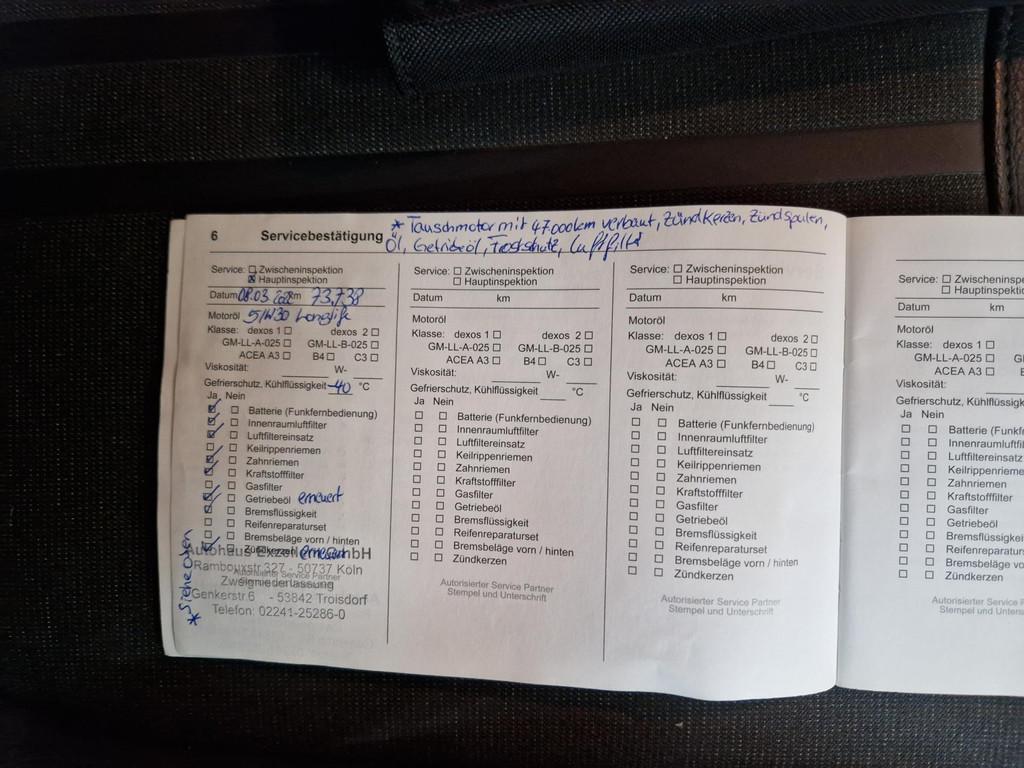 6 Servicebestätigung
* Tauschmotor mit 47000km verbaut, Zündkerzen, Zündspulen,
Öl, Getriebeöl, Frostschutz, Luftfilter
Service: ☐ Zwischeninspektion
☒ Hauptinspektion
Datum 08.03 km 73.738
Motoröl 5W30 Longlife
Klasse: dexos 1 ☐ dexos 2 ☐
GM-LL-A-025 ☐ GM-LL-B-025 ☐
ACEA A3 ☐ B4 ☐ C3 ☐
Viskosität: W-
Gefrierschutz, Kühlflüssigkeit -40 °C
Ja Nein
☑ ☐ Batterie (Funkfernbedienung)
☑ ☐ Innenraumluftfilter
☑ ☐ Luftfiltereinsatz
☐ ☐ Keilrippenriemen
☑ ☐ Zahnriemen
☑ ☐ Kraftstofffilter
☐ ☐ Gasfilter
☑ ☐ Getriebeöl erneuert
☐ ☐ Bremsflüssigkeit
☐ ☐ Reifenreparaturset
☐ ☐ Bremsbeläge vorn / hinten
☑ ☐ Zündkerzen
Autohaus GmbH
Rambouxstr.327 - 50737 Köln
Autorisierter Service Partner
Zweigniederlassung
Genkerstr.6 - 53842 Troisdorf
Telefon: 02241-25286-0
* Siehe oben
Service: ☐ Zwischeninspektion
☐ Hauptinspektion
Datum km
Motoröl
Klasse: dexos 1 ☐ dexos 2 ☐
GM-LL-A-025 ☐ GM-LL-B-025 ☐
ACEA A3 ☐ B4 ☐ C3 ☐
Viskosität: W-
Gefrierschutz, Kühlflüssigkeit °C
Ja Nein
☐ ☐ Batterie (Funkfernbedienung)
☐ ☐ Innenraumluftfilter
☐ ☐ Luftfiltereinsatz
☐ ☐ Keilrippenriemen
☐ ☐ Zahnriemen
☐ ☐ Kraftstofffilter
☐ ☐ Gasfilter
☐ ☐ Getriebeöl
☐ ☐ Bremsflüssigkeit
☐ ☐ Reifenreparaturset
☐ ☐ Bremsbeläge vorn / hinten
☐ ☐ Zündkerzen
Autorisierter Service Partner
Stempel und Unterschrift
Service: ☐ Zwischeninspektion
☐ Hauptinspektion
Datum km
Motoröl
Klasse: dexos 1 ☐ dexos 2 ☐
GM-LL-A-025 ☐ GM-LL-B-025 ☐
ACEA A3 ☐ B4 ☐ C3 ☐
Viskosität: W-
Gefrierschutz, Kühlflüssigkeit °C
Ja Nein
☐ ☐ Batterie (Funkfernbedienung)
☐ ☐ Innenraumluftfilter
☐ ☐ Luftfiltereinsatz
☐ ☐ Keilrippenriemen
☐ ☐ Zahnriemen
☐ ☐ Kraftstofffilter
☐ ☐ Gasfilter
☐ ☐ Getriebeöl
☐ ☐ Bremsflüssigkeit
☐ ☐ Reifenreparaturset
☐ ☐ Bremsbeläge vorn / hinten
☐ ☐ Zündkerzen
Autorisierter Service Partner
Stempel und Unterschrift
Service: ☐ Zwischeninspe
☐ Hauptinspekti
Datum km
Motoröl
Klasse: dexos 1 ☐
GM-LL-A-025 ☐ GM
ACEA A3 ☐ B4
Viskosität:
Gefrierschutz, Kühlflüssigk
Ja Nein
☐ ☐ Batterie (Funkf
☐ ☐ Innenraumluftfi
☐ ☐ Luftfiltereinsatz
☐ ☐ Keilrippenrieme
☐ ☐ Zahnriemen
☐ ☐ Kraftstofffilter
☐ ☐ Gasfilter
☐ ☐ Getriebeöl
☐ ☐ Bremsflüssigkei
☐ ☐ Reifenreparatu
☐ ☐ Bremsbeläge vo
☐ ☐ Zündkerzen
Autorisierter Service P
Stempel und Unters